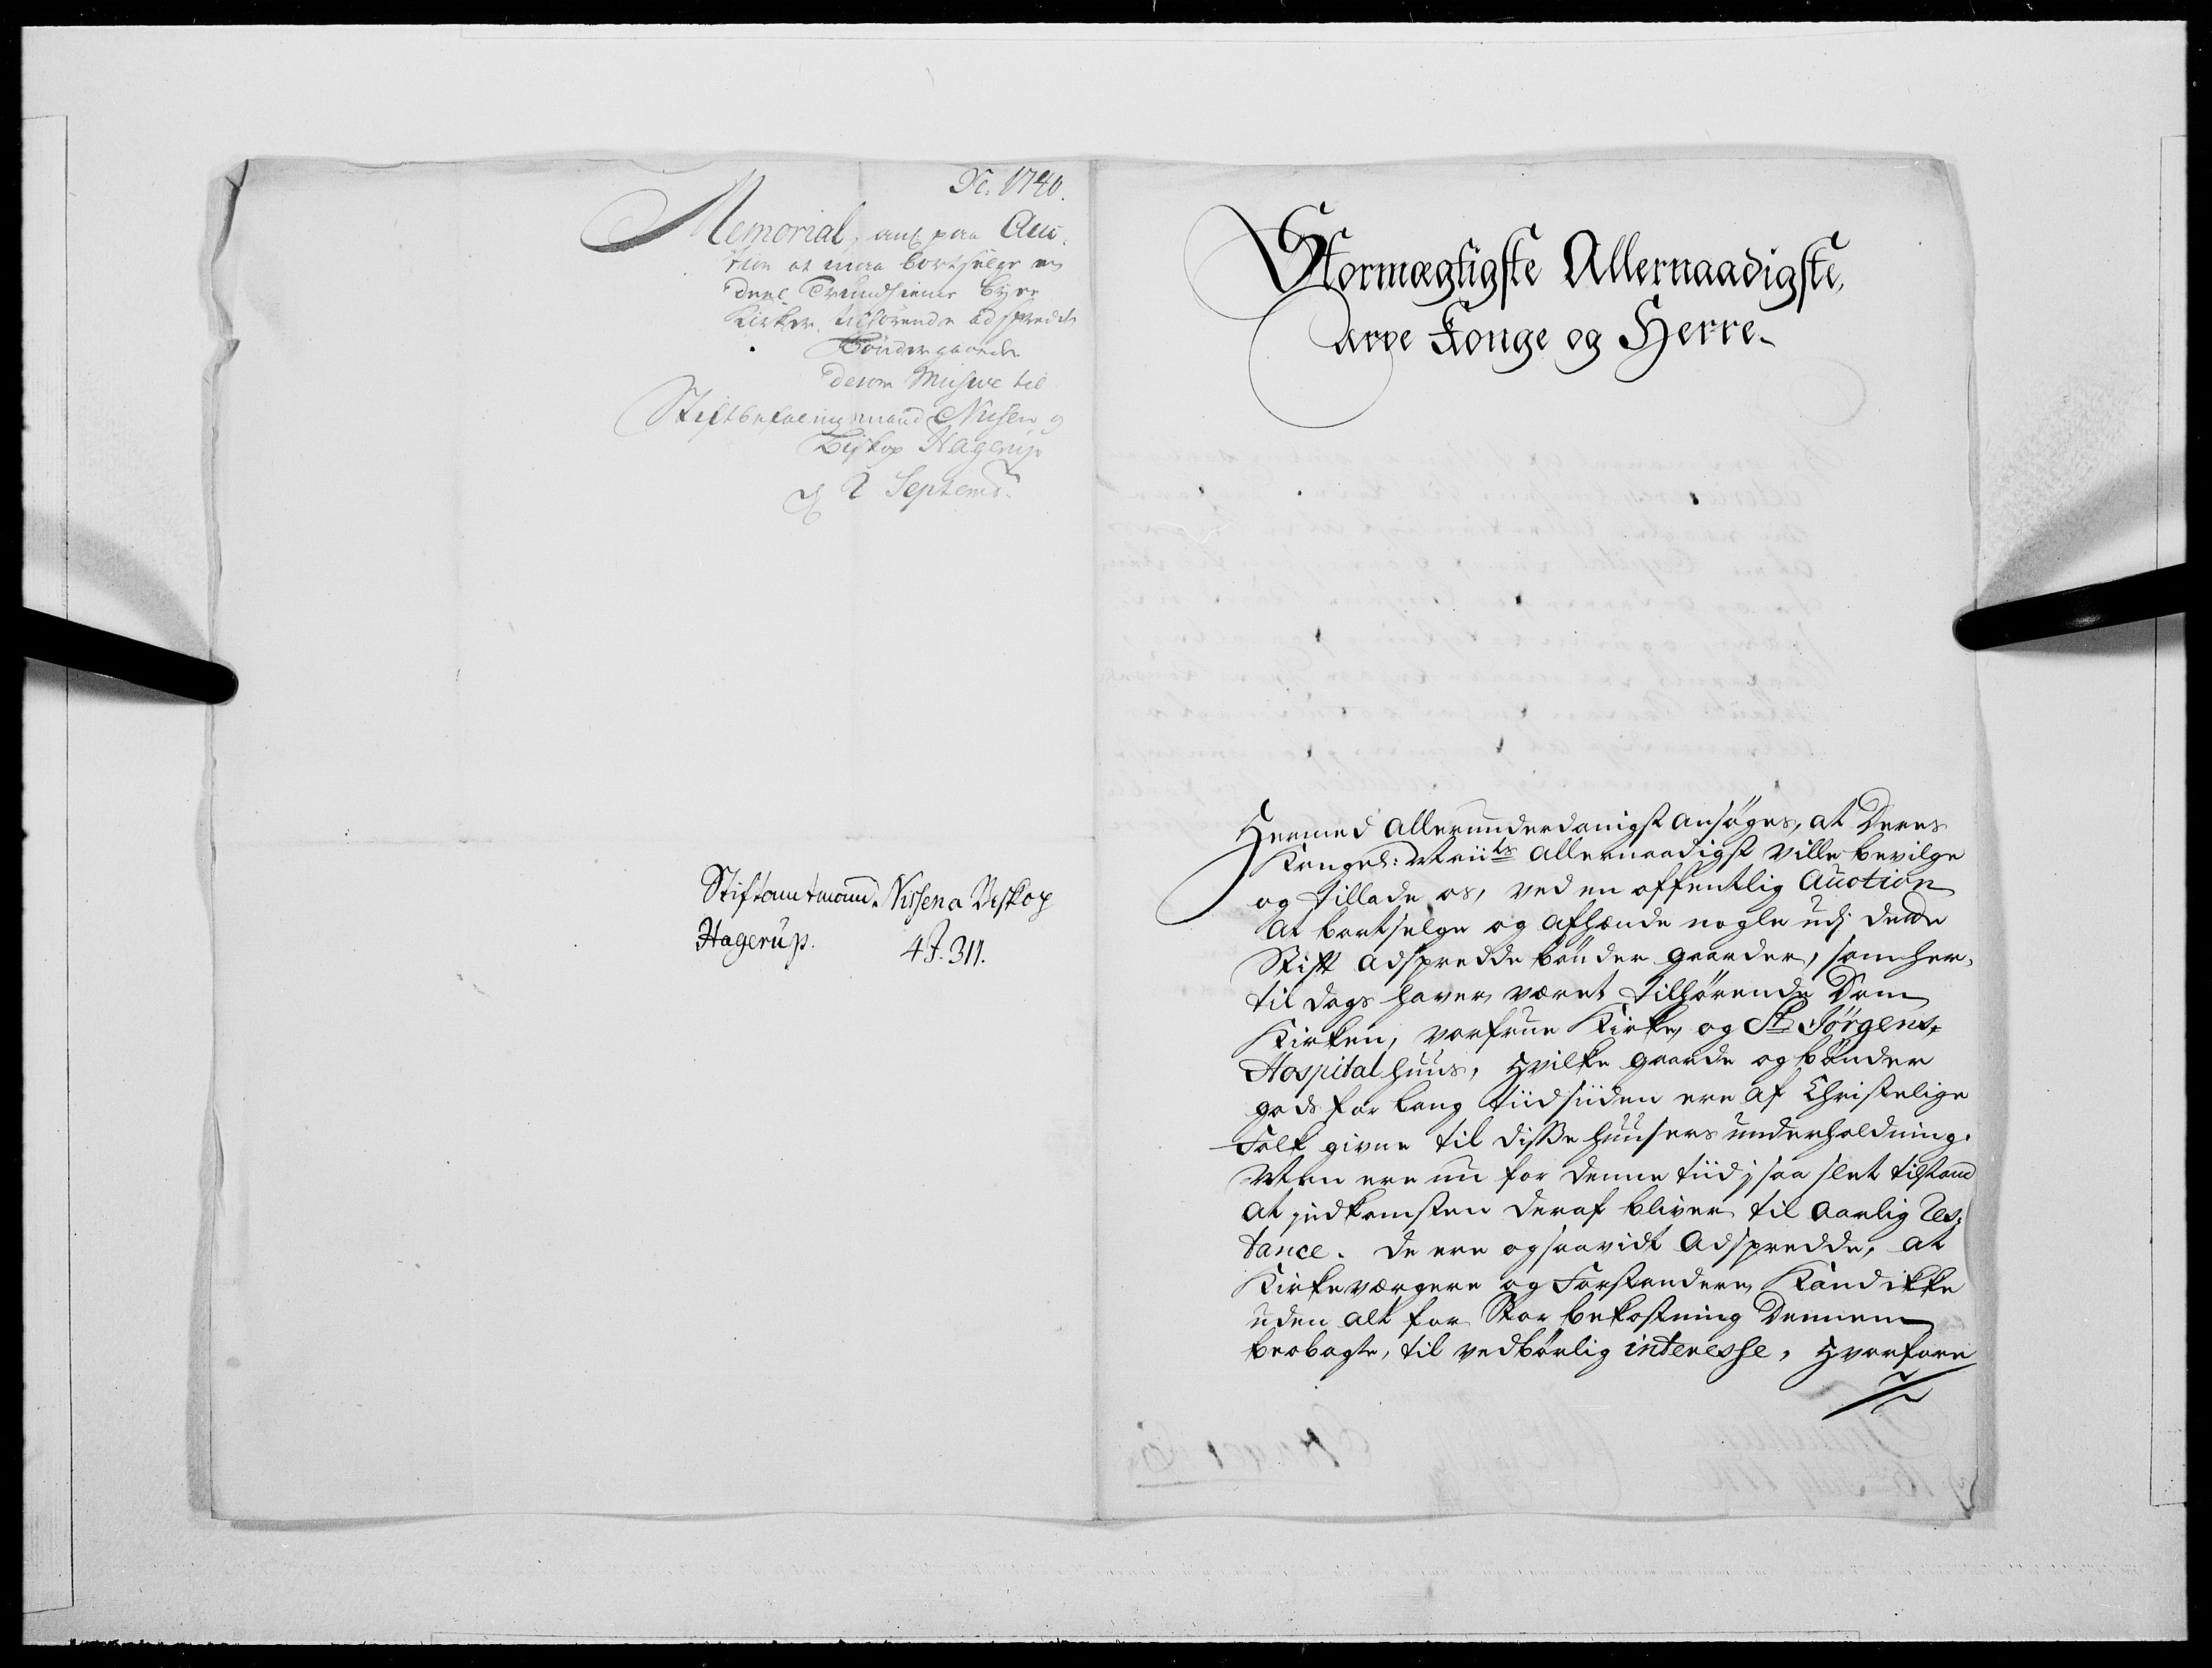 1740.
Memorial, ang paa Auc-
tion at maa bortselge en
Deel Trundhiems Byes
Kirker tilhørende adspredte
Bønder gaarde
derom Missive til
Stiftbefalingsmand Nissen og
Biskop Hagerup
d 2 Septemb:
Stiftamtmand Nissen a Biskop
Hagerup. 4 J. 311.
Stormægtigste Allernaadigste,
Arve Konge og Herre
Hermed allerunderdanigst ansøges, at Deres
Kongel: Maÿts allernaadigst ville bevilge
og tillade os, ved en offentlig Auction
at bortselge og afhænde nogle udj dette
Stift adspredde bønder gaarder, som her-
til dags haver været tilhørende Dom
Kirken, vorfrue Kirke, og St Jørgens
Hospital huus, hvilke gaarde og bønder
gods for lang tiid siiden ere af Christelige
Folk givne til disse huusers underholdning.
Men ere nu for denne tiid j saa slet tilstand
at jndkomsten deraf bliver til aarlig Res-
tance. De ere og saavidt adspredde, at
Kirkeværgere og Forstandere Kand ikke
uden alt for Stor bekostning Dennem
beobagte, til vedbørlig interesse, hvorfore